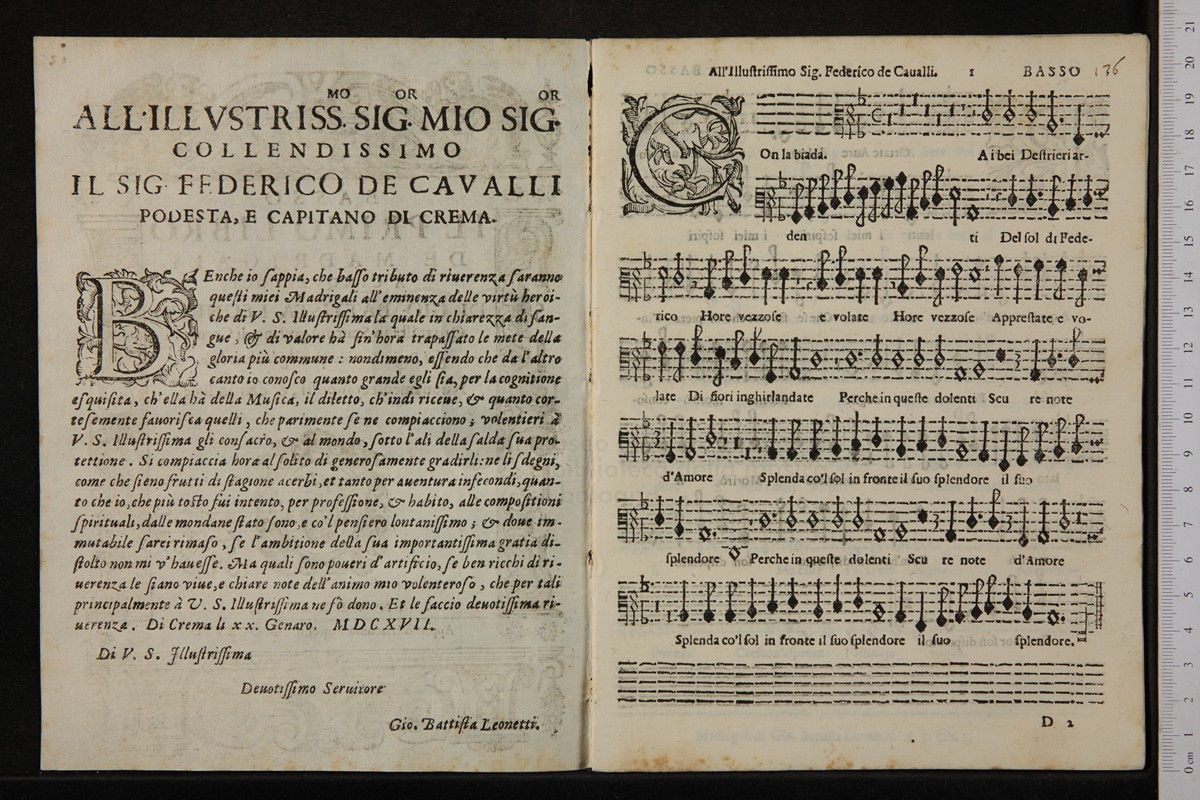 MO OR OR
ALL'ILLVSTRISS. SIG. MIO SIG.
COLLENDISSIMO
IL SIG. FEDERICO DE CAVALLI
PODESTA, E CAPITANO DI CREMA.
BEnche io sappia, che basso tributo di riuerenza saranno
questi miei Madrigali all'eminenza delle virtù heroi-
che di V. S. Illustrissima la quale in chiarezza di san-
gue, & di valore hà sin'hora trapassato le mete della
gloria più commune: nondimeno, essendo che da l'altro
canto io conosco quanto grande egli sia, per la cognitione
esquisita, ch'ella hà della Musica, il diletto, ch'indi riceue, & quanto cor-
tesemente fauorisca quelli, che parimente se ne compiacciono; volentieri à
V. S. Illustrissima gli consacro, & al mondo, sotto l'ali della salda sua pro-
tettione. Si compiaccia hora al solito di generosamente gradirli: ne li sdegni,
come che sieno frutti di stagione acerbi, et tanto per auentura infecondi, quan-
to che io, che più tosto fui intento, per professione, & habito, alle compositioni
spirituali, dalle mondane stato sono, e co'l pensiero lontanissimo; & doue im-
mutabile sarei rimaso, se l'ambitione della sua importantissima gratia di-
stolto non mi v'hauesse. Ma quali sono poueri d'artificio, se ben ricchi di ri-
uerenza le siano viue, e chiare note dell'animo mio volenteroso, che per tali
principalmente à V. S. Illustrissima ne fò dono. Et le faccio deuotissima ri-
uerenza. Di Crema li xx. Genaro. MDCXVII.
Di V. S. Illustrissima
Deuotissimo Seruitore
Gio. Battista Leonetti.
All'Illustrissimo Sig. Federico de Caualli. 1 BASSO 136
COn la biada. A i bei Destrieri ar-
den ti Del sol di Fede-
rico Hore vezzose e volate Hore vezzose Apprestate e vo-
late Di fiori inghirlandate Perche in queste dolenti Scu re note
d'Amore Splenda co'l sol in fronte il suo splendore il suo
splendore Perche in queste dolenti Scu re note d'Amore
Splenda co'l sol in fronte il suo splendore il suo splendore.
D 2
0 cm 1 2 3 4 5 6 7 8 9 10 11 12 13 14 15 16 17 18 19 20 21